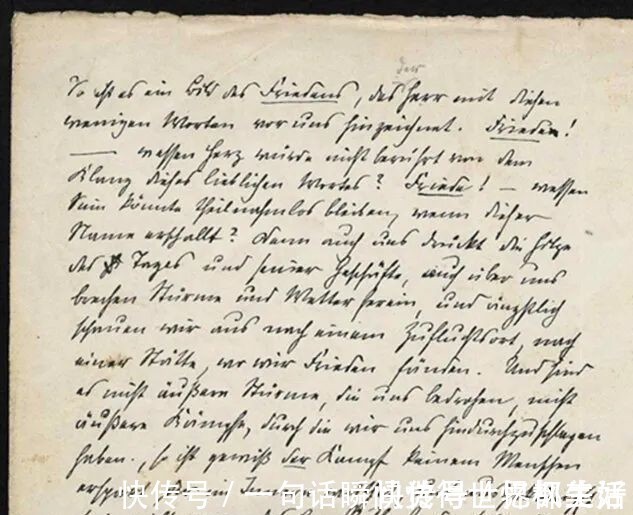 der
So ist es ein Bild des Friedens, das Herr mit diesen
wenigen Worten vor uns hinzeichnet. Frieden!
— wessen Herz würde nicht berührt von dem
Klang dieses lieblichen Wortes? Friede! — wessen
Sinn könnte theilnahmlos bleiben, wenn dieser
Name erschallt? Denn auch uns drückt die Hitze
des Tages und seiner Geschäfte, auch über uns
brechen Stürme und Wetter herein, und ängstlich
schauen wir aus nach einem Zufluchtsort, nach
einer Stätte, wo wir Frieden fänden. Und sind
es nicht äußere Stürme, die uns bedrohen, nicht
äußere Kämpfe, durch die wir uns hindurchzuschlagen
haben, so ist gewiß der Kampf keinem Menschen
erspart
快传号 / 一句话瞬间